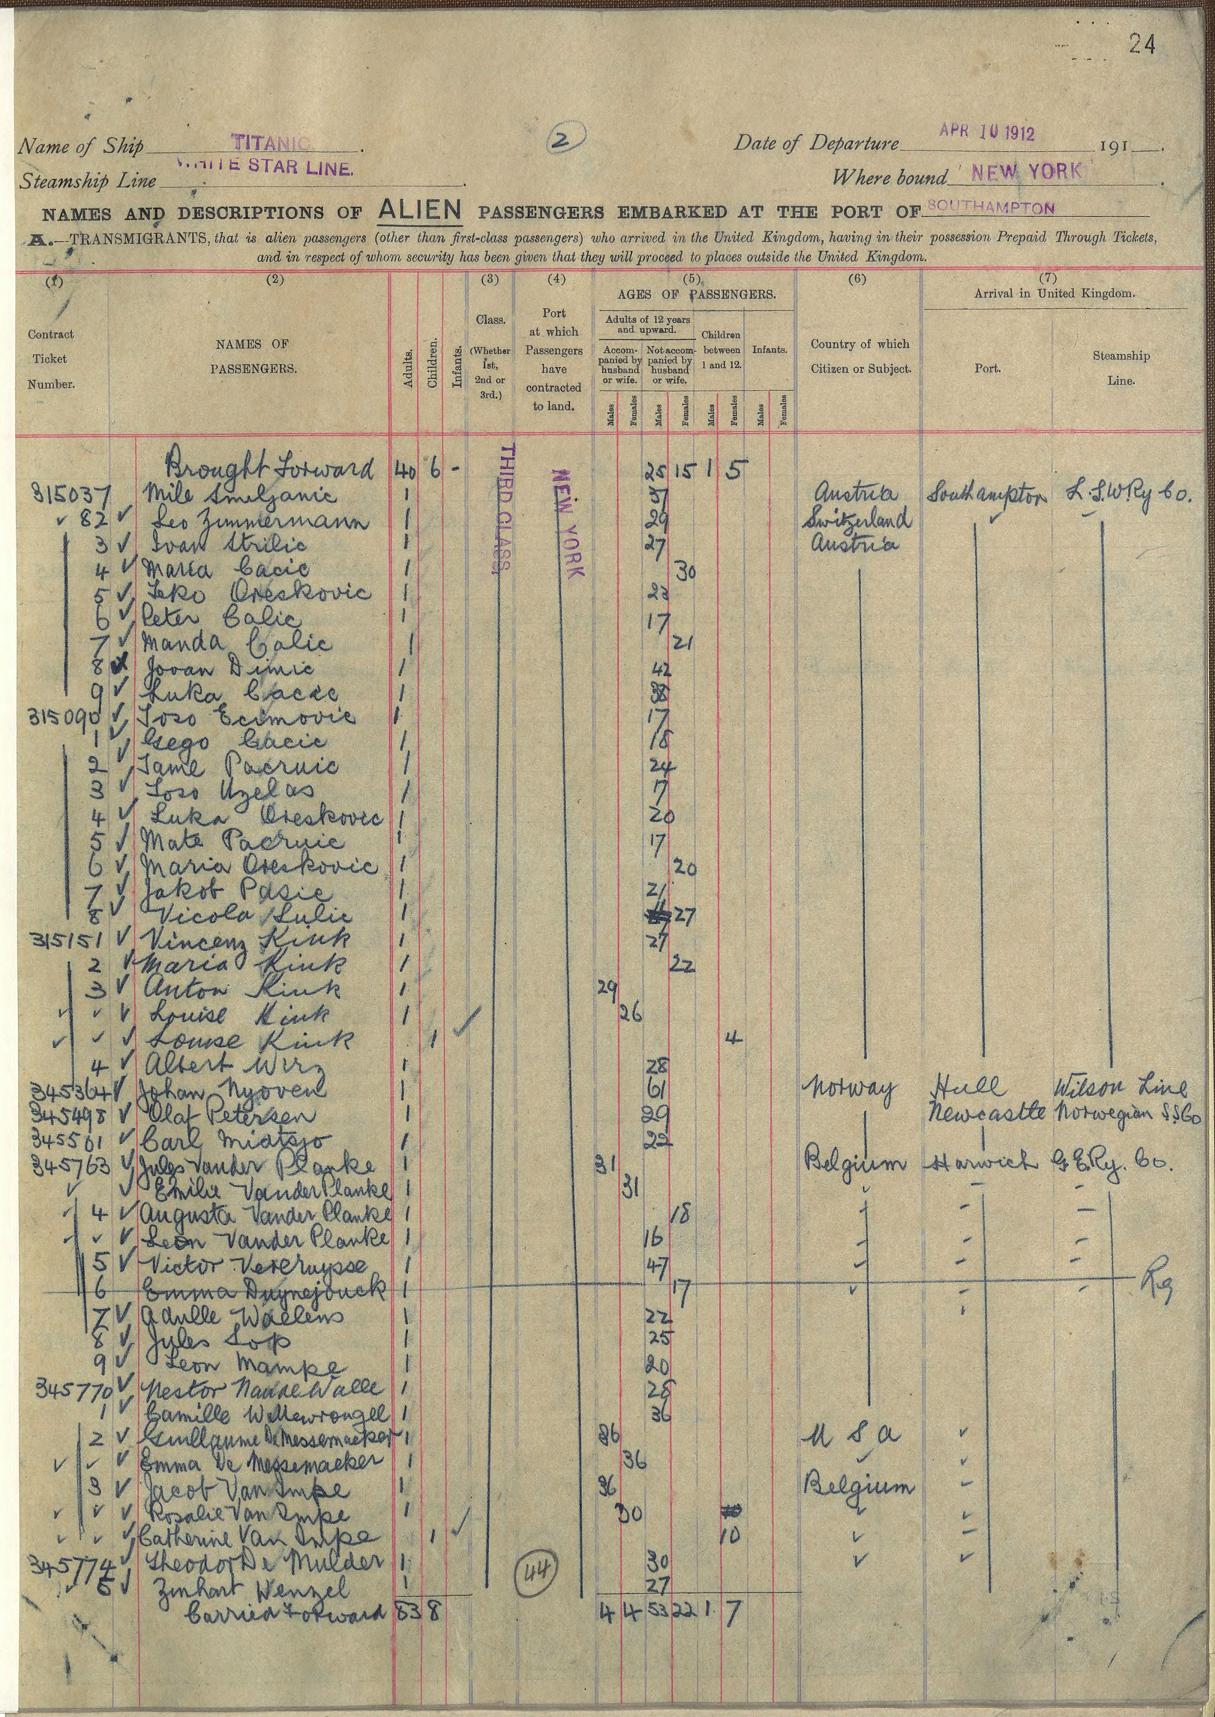 24
Name of Ship TITANIC. (2) Date of Departure APR 10 1912 191 .
Steamship Line WHITE STAR LINE. Where bound NEW YORK
NAMES AND DESCRIPTIONS OF ALIEN PASSENGERS EMBARKED AT THE PORT OF SOUTHAMPTON
A.—TRANSMIGRANTS, that is alien passengers (other than first-class passengers) who arrived in the United Kingdom, having in their possession Prepaid Through Tickets,
and in respect of whom security has been given that they will proceed to places outside the United Kingdom.
(1) (2) (3) (4) (5) (6) (7)
Contract Ticket Number.
NAMES OF PASSENGERS.
Adults. Children. Infants.
Class. (Whether 1st, 2nd or 3rd.)
Port at which Passengers have contracted to land.
AGES OF PASSENGERS.
Adults of 12 years and upward.
Accompanied by husband or wife.
Not accompanied by husband or wife.
Children between 1 and 12.
Infants.
Males Females Males Females Males Females Males Females
Country of which Citizen or Subject.
Arrival in United Kingdom.
Port.
Steamship Line.
THIRD CLASS
NEW YORK
Brought Forward 40 6 - 25 15 1 5
315037 Mile Smiljanic 1 37 Austria Southampton L.S.W.Ry Co.
82 Leo Zimmermann 1 29 Switzerland
3 Ivan Strilic 1 27 Austria
4 Maria Cacic 1 30
5 Jeko Oreskovic 1 23
6 Peter Calic 1 17
7 Manda Calic 1 21
8 Jovan Dimic 1 42
9 Luka Cacic 1 38
315090 Joso Ecimovic 1 17
1 Gego Cacic 1 18
2 Tame Pacruic 1 24
3 Joso Uzelas 1 17
4 Luka Oreskovic 1 20
5 Mate Pacruic 1 17
6 Maria Oreskovic 1 20
7 Jakob Pasic 1 21
8 Vicola Lulic 1 27
315151 Vincenz Kink 1 27
2 Maria Kink 1 22
3 Anton Kink 1 29
Louise Kink 1 26
Louise Kink 1 4
4 Albert Wirz 1 28
345364 Johan Nyoven 1 61 Norway Hull Wilson Line
345498 Olaf Petersen 1 29 Newcastle Norwegian S.S Co
345501 Carl Midtsjo 1 22
345763 Jules Vander Planke 1 31 Belgium Harwich G.E.Ry. Co.
Emilie VanderPlanke 1 31
4 Augusta Vander Planke 1 18
Leon Vander Planke 1 16
5 Victor Vercruysse 1 47
6 Emma Duynejouck 1 17
7 Adulle Waelens 1 22
8 Jules Sop 1 25
9 Leon Mampe 1 20
345770 Nestor VandeWalle 1 28
1 Camille 1 36
2 Guillaume De Messemaeker 1 36 U S A
Emma De Messemaeker 1 36
3 Jacob Van Impe 1 36 Belgium
Rosalie Van Impe 1 30
Catherine Van Impe 1 10
345774 Theodor De Mulder 1 30
5 Zinhart Wenzel 1 27
(44)
Carried Forward 83 8 4 4 53 22 1 7